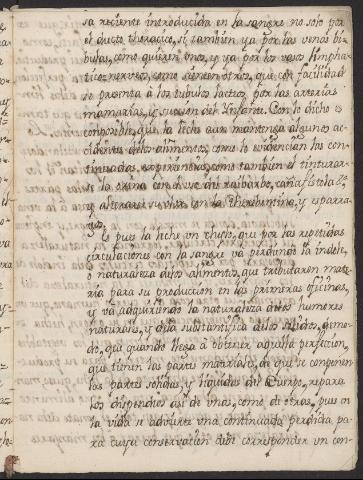 sa reciente introducida en la sangre no solo por
el ducto thoracico, si tambien ya por las venas bi-
bulas, como quieren unos, y ya por los vasos limpha-
ticos nerveos, como sienten otros, que con facilidad
se presenta à los tubulos lacteos por las arterias
mamarias, y succion del Ynfante. Con lo dicho es
componible, que la leche aun mantenga algunos ac-
cidentes delos alimentos, como lo evidencian las con-
tinuadas experiencias, como tambien el tinturar-
se la orina con el uso del ruibarbo, cañafistola &c.
y alterarse su olor con la therebentina, y esparra-
gos.
Es pues la leche un chylo, que por las repetidas
circulaciones con la sangre và perdiendo la indole,
ò naturaleza delos alimentos, que tributaron mate-
ria para su produccion en las primeras oficinas,
y và adquiriendo la naturaleza delos humores
naturales, y dela substantifica delos solidos, de mo-
do, que quando llega à obtener aquella perfeccion,
que tienen las partes materiales, de que se componen
las partes solidas, y liquidas del Cuerpo, repara
los dispendios asi de unas, como de otras, pues en
la vida se advierte una continuada perdida, pa-
ra cuya conservacion debe corresponder un con-